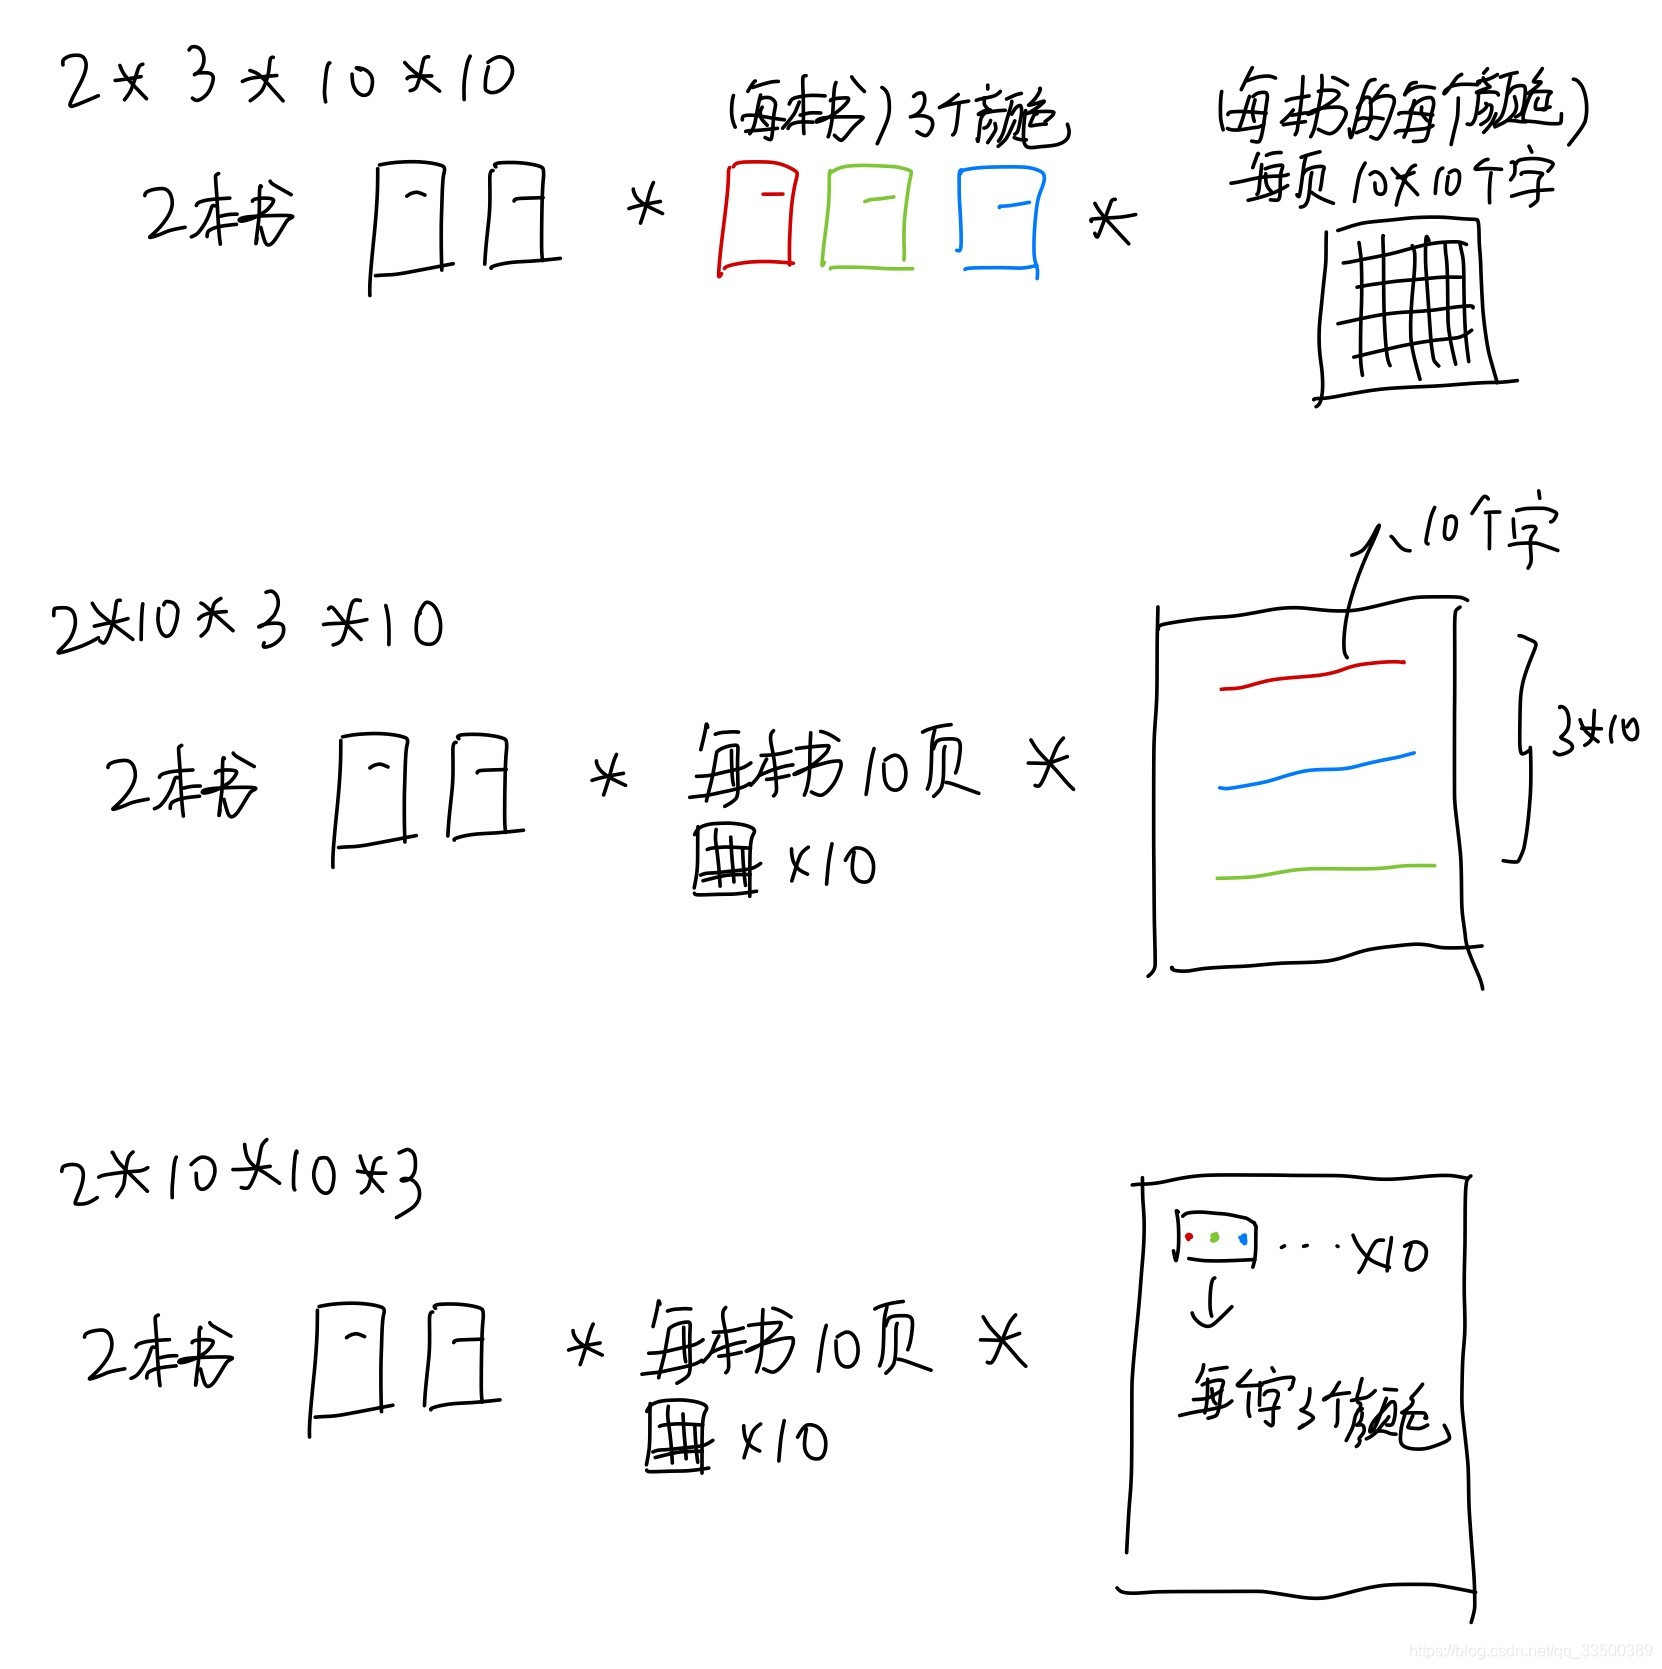 2*3*10*10
(每本书)3个颜色
(每本书的每个颜色)
每页10×10个字
2本书 * *
10个字
2*10*3*10
3*10
2本书 * 每本书10页 *
×10
2*10*10*3
...×10
2本书 * 每本书10页 *
×10
每个字3个颜色
https://blog.csdn.net/qq_33500389